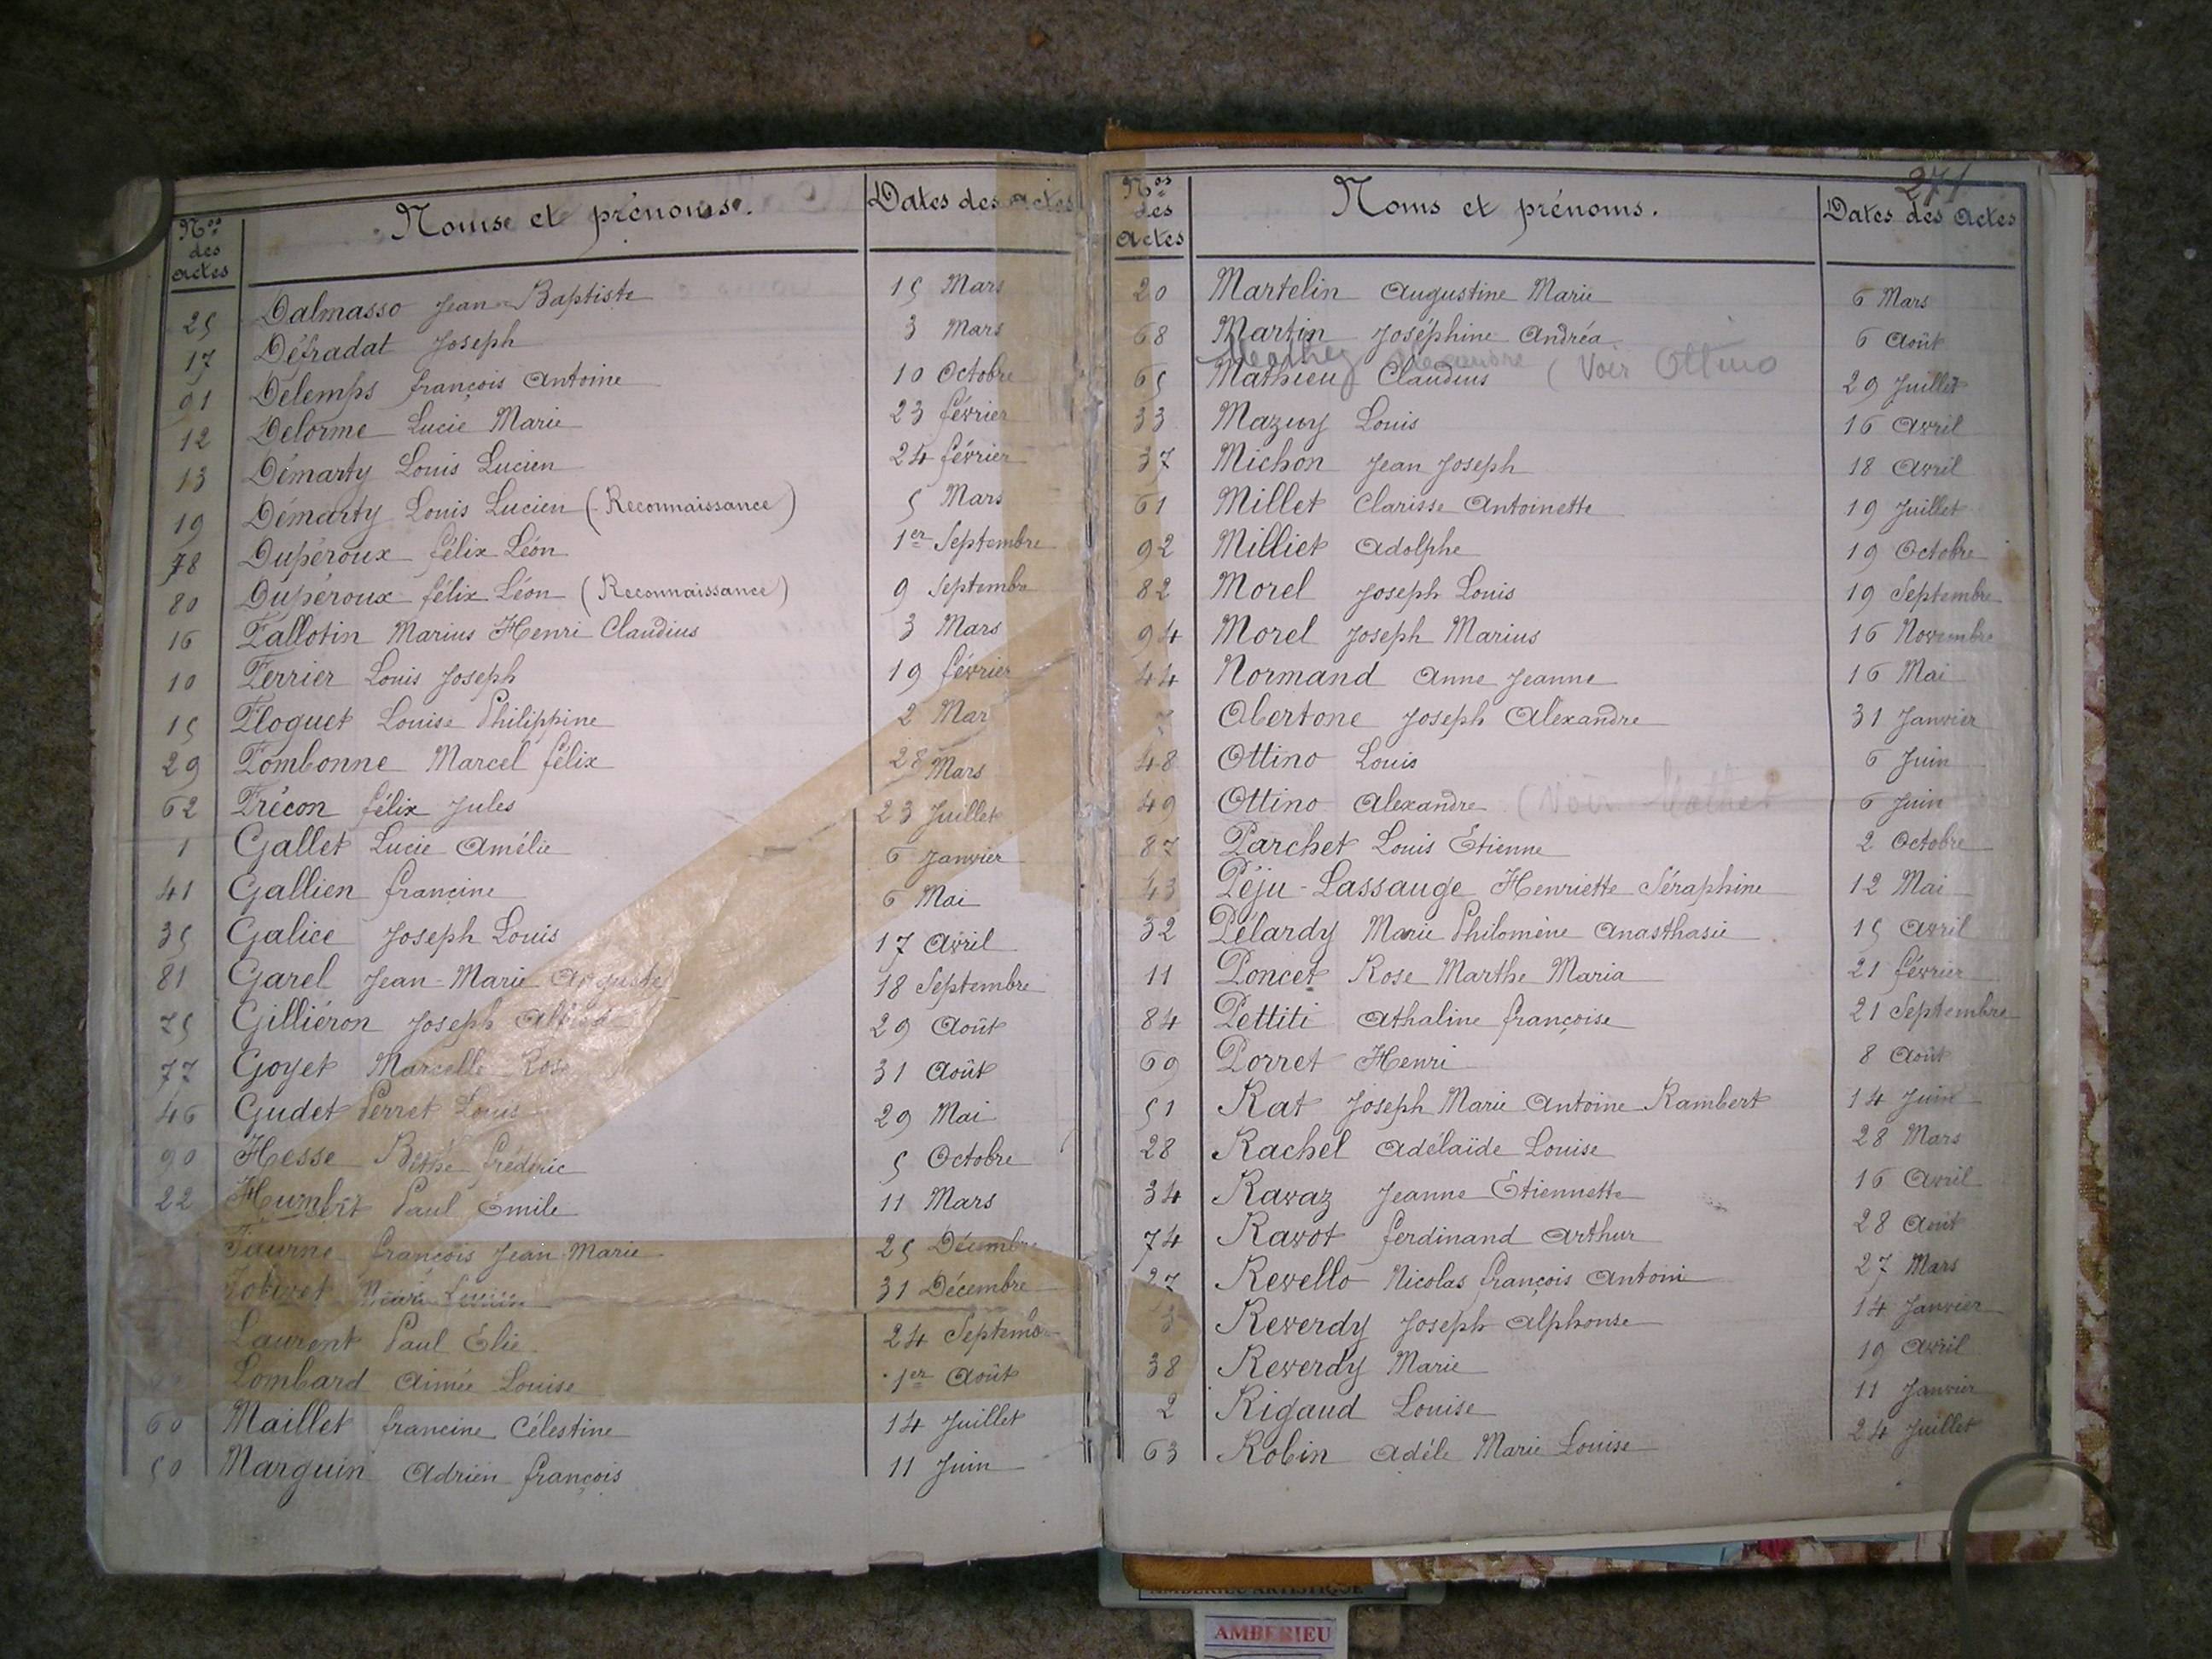 Nos des actes Noms et prénoms. Dates des actes
25 Dalmasso Jean-Baptiste 15 Mars
17 Défradat Joseph 3 Mars
91 Delemps François Antoine 10 Octobre
12 Delorme Lucie Marie 23 février
13 Démarty Louis Lucien 24 février
19 Démarty Louis Lucien (Reconnaissance) 5 Mars
78 Dupéroux félix Léon 1er Septembre
80 Dupéroux félix Léon (Reconnaissance) 9 Septembre
16 Fallotin Marius Henri Claudius 3 Mars
10 Ferrier Louis Joseph 19 février
15 Floquet Louise Philippine 2 Mars
29 Fombonne Marcel félix 28 Mars
62 Frécon félix Jules 23 Juillet
1 Gallet Lucie Amélie 6 Janvier
41 Gallien francine 6 Mai
35 Galice Joseph Louis 17 Avril
81 Garel Jean-Marie Auguste 18 Septembre
75 Gilliéron Joseph Alfred 29 Août
77 Goyet Marcelle Rose 31 Août
46 Gudet Perret Louis 29 Mai
90 Hesse frédéric 5 Octobre
22 Humbert Paul Émile 11 Mars
françois Jean Marie 25 Décembre
31 Décembre
Laurent Paul Élie 24 Septembre
Lombard Aimée Louise 1er Août
60 Maillet francine Célestine 14 Juillet
50 Marguin Adrien françois 11 Juin
271
Nos des actes Noms et prénoms. Dates des actes
20 Martelin Augustine Marie 6 Mars
68 Martin Joséphine Andréa 6 Août
Alexandre (Voir Ottino
65 Mathieu Claudius 29 Juillet
33 Mazuy Louis 16 Avril
37 Michon Jean Joseph 18 Avril
61 Millet Clarisse Antoinette 19 Juillet
92 Milliet Adolphe 19 Octobre
82 Morel Joseph Louis 19 Septembre
94 Morel Joseph Marius 16 Novembre
44 Normand Anne Jeanne 16 Mai
7 Obertone Joseph Alexandre 31 Janvier
48 Ottino Louis 6 Juin
49 Ottino Alexandre (Voir 6 Juin
87 Parchet Louis Étienne 2 Octobre
43 Péju-Lassauge Henriette Séraphine 12 Mai
32 Pélardy Marie Philomène Anasthasie 15 Avril
11 Poncet Rose Marthe Maria 21 février
84 Pettiti Athaline françoise 21 Septembre
69 Porret Henri 8 Août
51 Rat Joseph Marie Antoine Rambert 14 Juin
28 Rachel Adélaïde Louise 28 Mars
34 Ravaz Jeanne Étiennette 16 Avril
74 Ravot ferdinand Arthur 28 Août
27 Revello Nicolas françois Antoine 27 Mars
3 Reverdy Joseph Alphonse 14 Janvier
38 Reverdy Marie 19 Avril
2 Rigaud Louise 11 Janvier
63 Robin Adèle Marie Louise 24 Juillet
AMBERIEU ARTISTIQUE
AMBERIEU